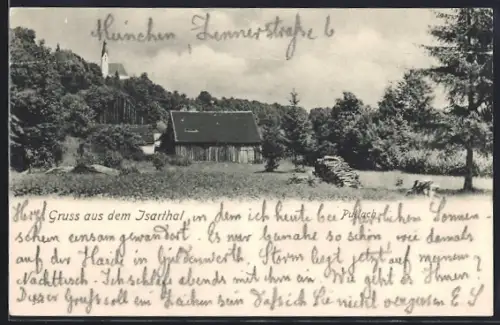 München Zennerstraße 6
Herzl Gruss aus dem Isarthal, in dem ich heute bei herrlichem Sonnen-
Pullach
schein einsam gewandert. Es war so schön wie damals
auf der Haide in Sterns liegt jetzt auf meinem
Nachttisch. Ich schlafe abends mit ihm ein. Wie geht es Ihnen?
Dieser Gruss soll ein Zeichen sein daß ich Sie nicht vergessen E S